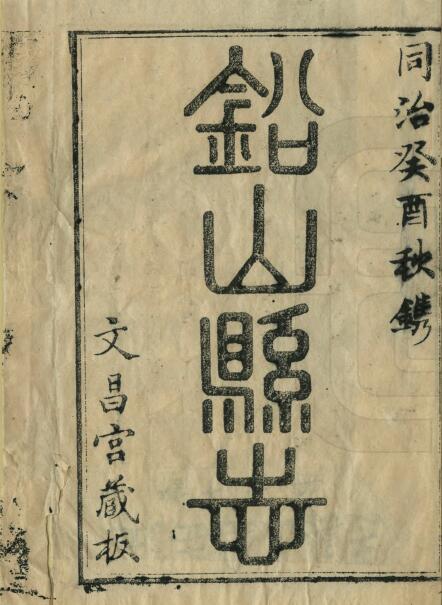 同治癸酉秋鐫
鉛山縣志
文昌宮藏板